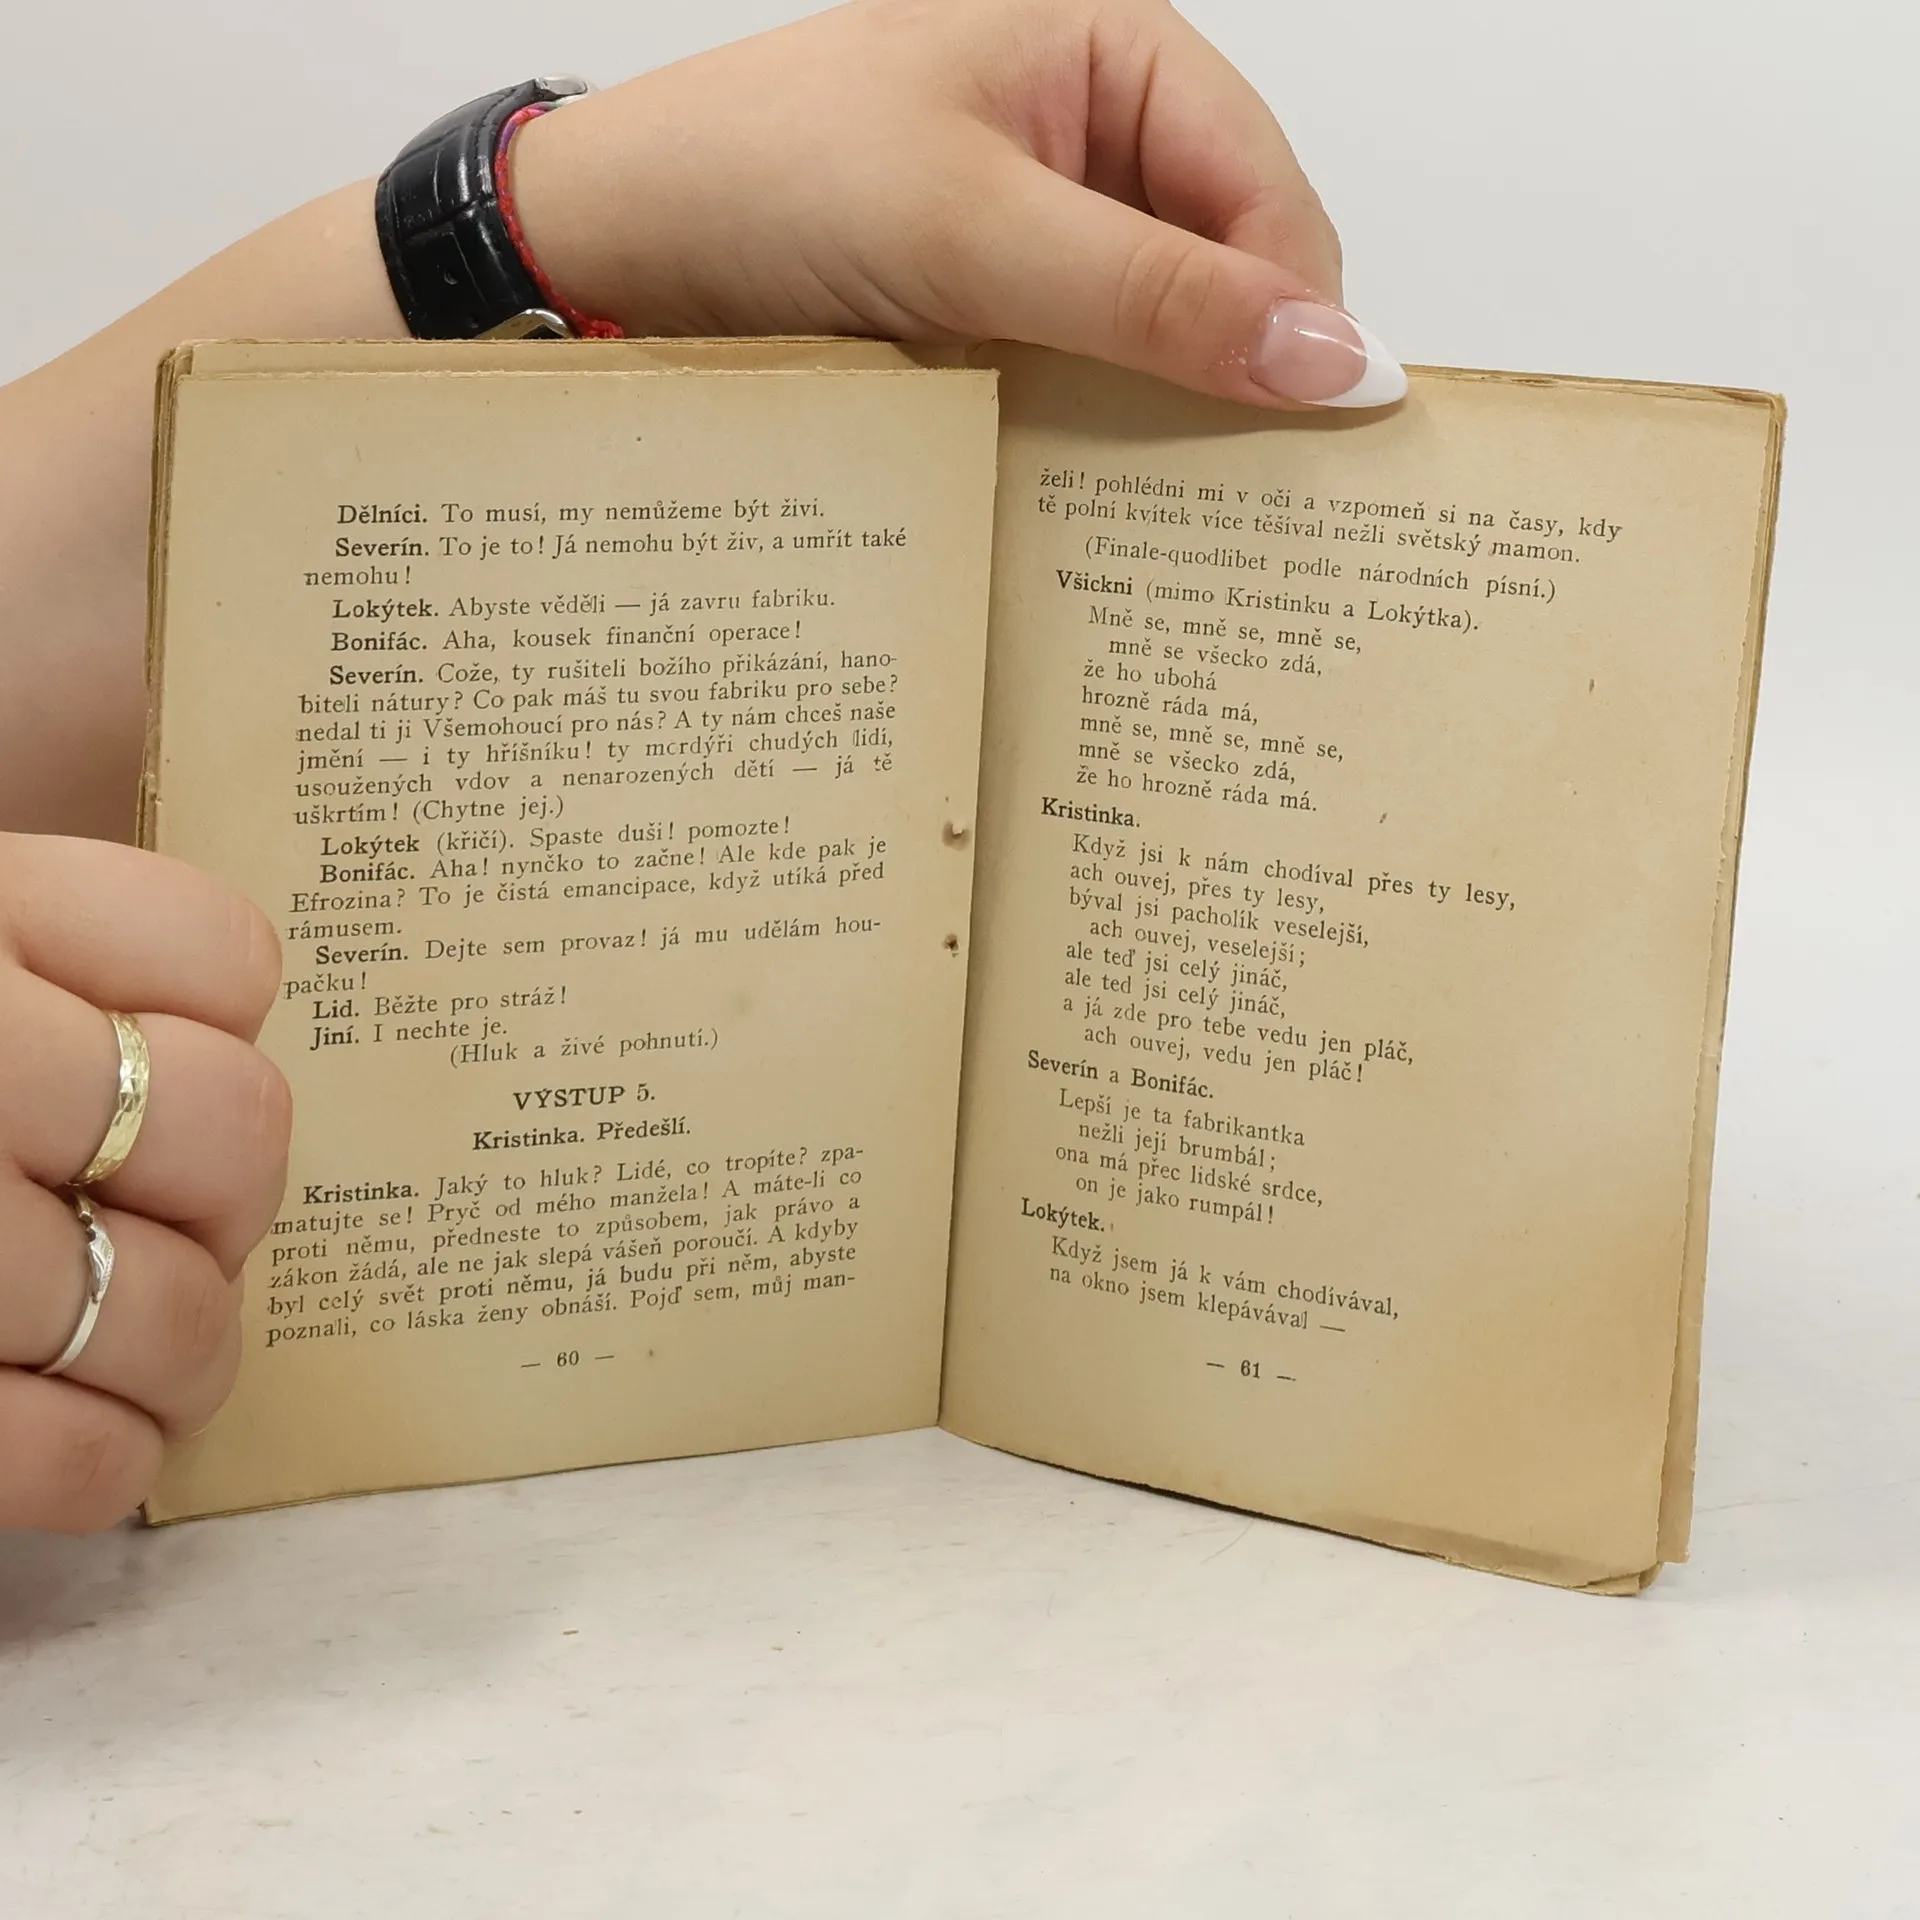 Dělníci. To musí, my nemůžeme být živi.
Severín. To je to! Já nemohu být živ, a umřít také
nemohu!
Lokýtek. Abyste věděli — já zavru fabriku.
Bonifác. Aha, kousek finanční operace!
Severín. Cože, ty rušiteli božího přikázání, hano-
biteli nátury? Co pak máš tu svou fabriku pro sebe?
nedal ti ji Všemohoucí pro nás? A ty nám chceš naše
jmění — i ty hříšníku! ty mordýři chudých lidí,
usoužených vdov a nenarozených dětí — já tě
uškrtím! (Chytne jej.)
Lokýtek (křičí). Spaste duši! pomozte!
Bonifác. Aha! nynčko to začne! Ale kde pak je
Efrozina? To je čistá emancipace, když utíká před
rámusem.
Severín. Dejte sem provaz! já mu udělám hou-
pačku!
Lid. Běžte pro stráž!
Jiní. I nechte je.
(Hluk a živé pohnutí.)
VÝSTUP 5.
Kristinka. Předešlí.
Kristinka. Jaký to hluk? Lidé, co tropíte? zpa-
matujte se! Pryč od mého manžela! A máte-li co
proti němu, předneste to způsobem, jak právo a
zákon žádá, ale ne jak slepá vášeň poroučí. A kdyby
byl celý svět proti němu, já budu při něm, abyste
poznali, co láska ženy obnáší. Pojď sem, můj man-
— 60 —
želi! pohlédni mi v oči a vzpomeň si na časy, kdy
tě polní kvítek více těšíval nežli světský mamon.
(Finale-quodlibet podle národních písní.)
Všickni (mimo Kristinku a Lokýtka).
Mně se, mně se, mně se,
mně se všecko zdá,
že ho ubohá
hrozně ráda má,
mně se, mně se, mně se,
mně se všecko zdá,
že ho hrozně ráda má.
Kristinka.
Když jsi k nám chodíval přes ty lesy,
ach ouvej, přes ty lesy,
býval jsi pacholík veselejší,
ach ouvej, veselejší;
ale teď jsi celý jináč,
ale ted jsi celý jináč,
a já zde pro tebe vedu jen pláč,
ach ouvej, vedu jen pláč!
Severín a Bonifác.
Lepší je ta fabrikantka
nežli její brumbál;
ona má přec lidské srdce,
on je jako rumpál!
Lokýtek.
Když jsem já k vám chodívával,
na okno jsem klepávával —
— 61 —